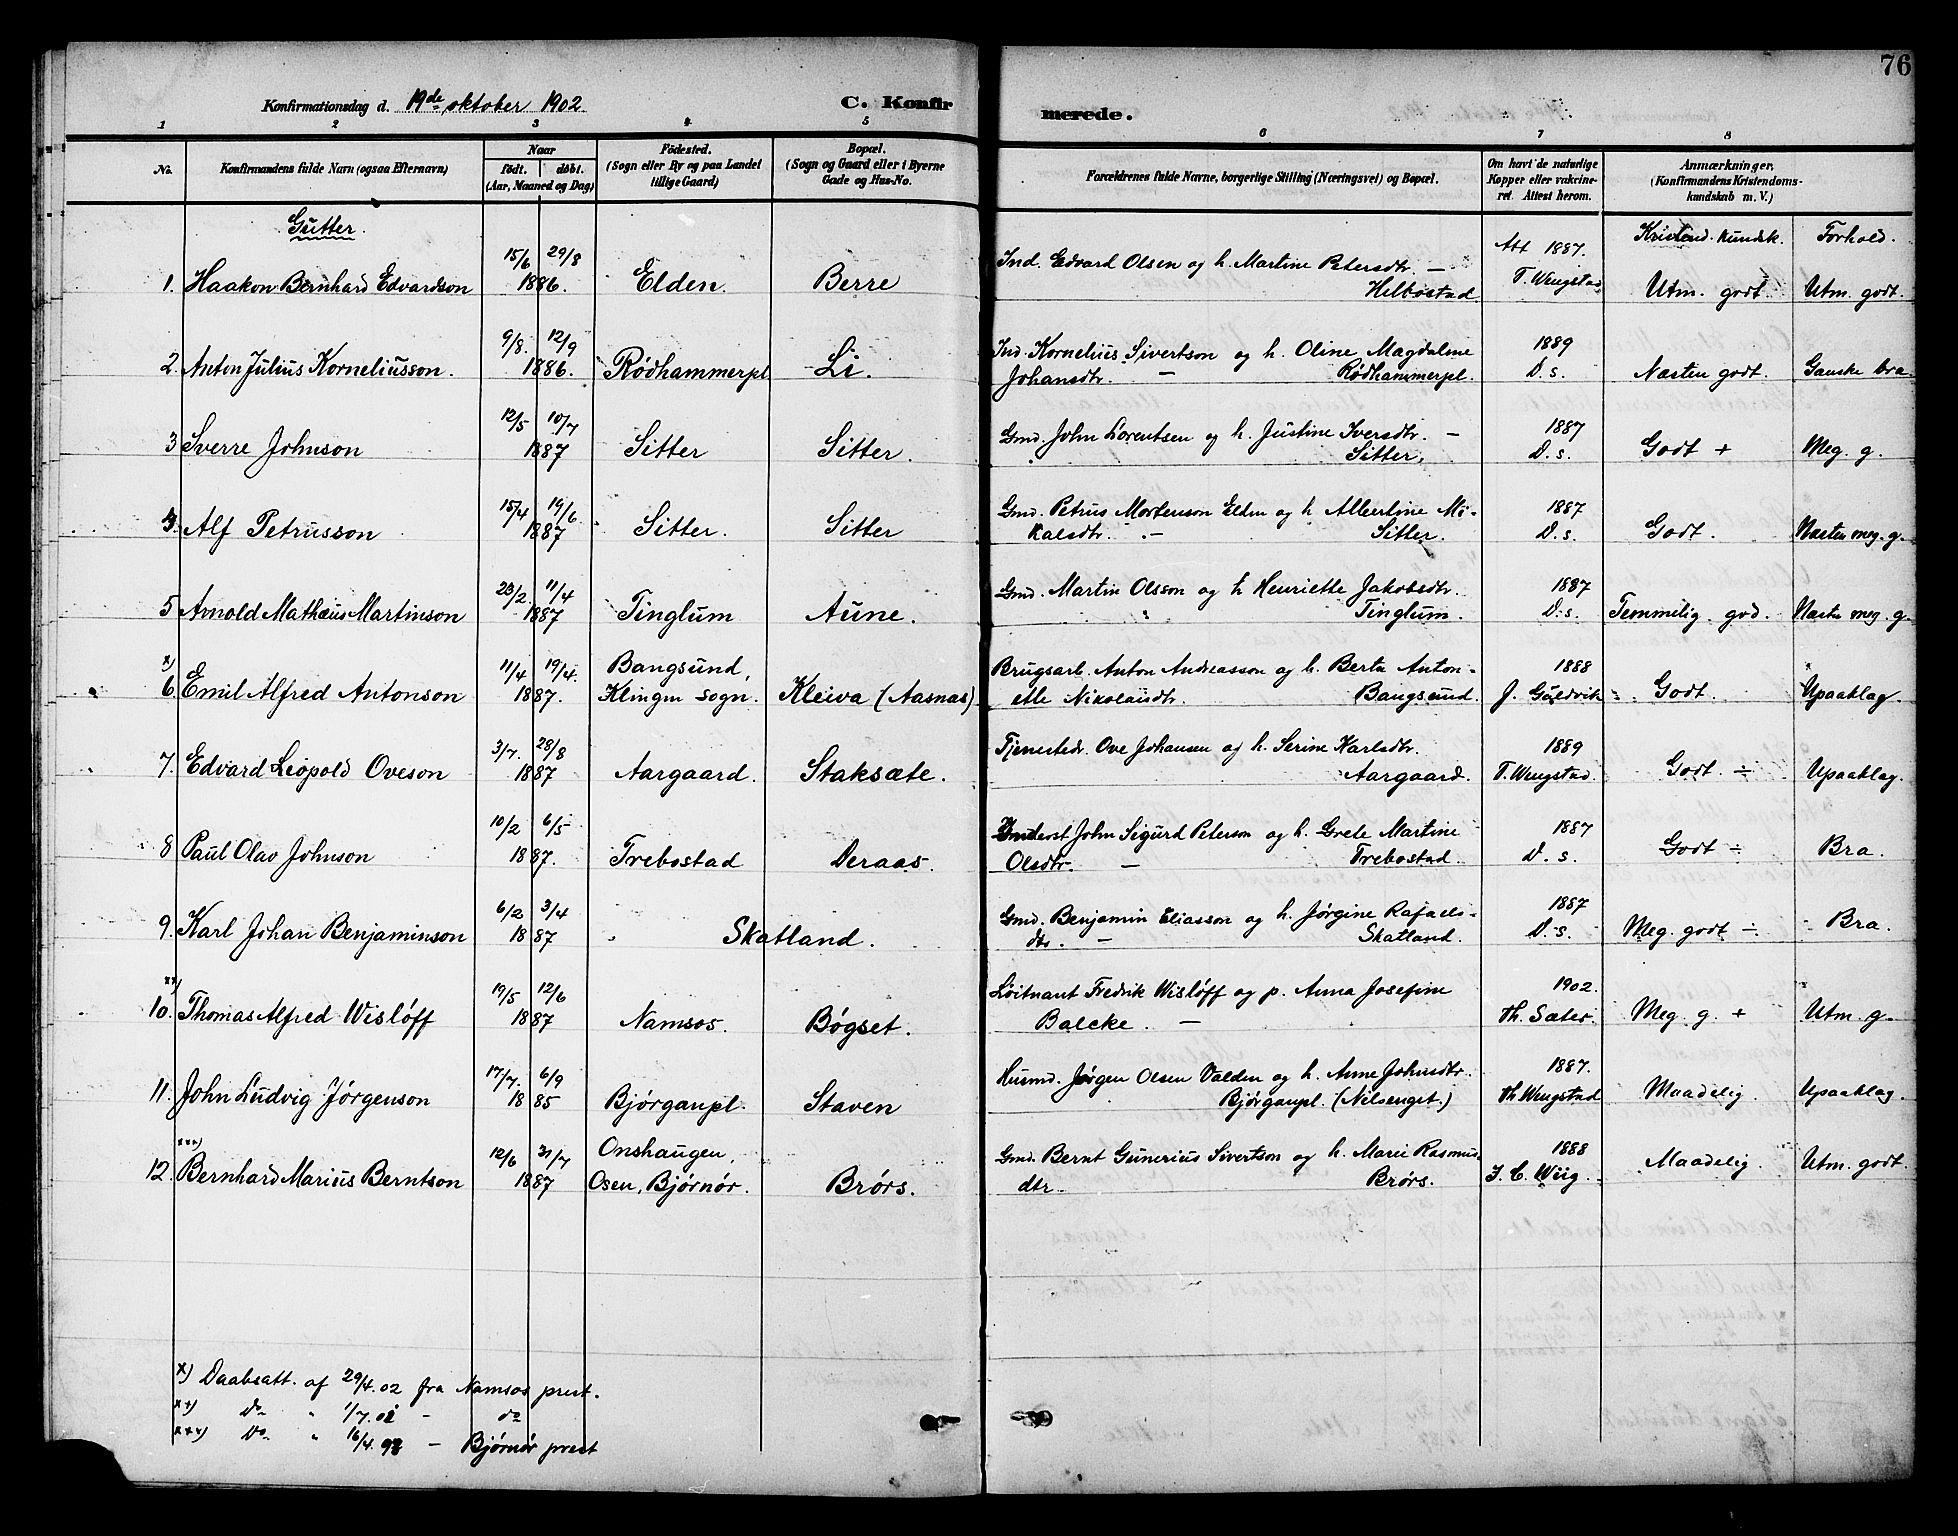 76
Konfirmationsdag d. 19de oktober 1902
C. Konfir
merede.
1 2 3 4 5 6 7 8
No.
Konfirmandens fulde Navn (ogsaa Efternavn)
Naar
født. døbt.
(Aar, Maaned og Dag)
Fødested.
(Sogn eller By og paa Landet
tillige Gaard)
Bopæl.
(Sogn og Gaard eller i Byerne
Gade og Hus-No.
Forældrenes fulde Navne, borgerlige Stilling (Næringsvei) og Bopæl.
Om havt de naturlige
Kopper eller vakcine-
ret. Attest herom.
Anmærkninger,
(Konfirmandens Kristendoms-
kundskab m. V.)
Gutter.
Kristend. kundsk. Forhold.
15/6 29/8 Ind. Edvard Olsen og h. Martine Petersdtr. — Att 1887.
1. Haakon Bernhard Edvardson 1886. Elden. Berre Helbostad T. Wengstad Utm. godt. Utm. godt.
9/8. 12/9 Ind. Kornelius Sivertson og h. Oline Magdalene 1889
2. Anton Julius Korneliusson. 1886. Rødhammerpl Li. Johansdtr. — Rødhammerpl. D. s. Næsten godt. Ganske bra.
12/5 10/7 Gmd. John Lorentsen og h. Justine Iversdtr. — 1887
3 Sverre Johnson 1887 Sitter Sitter. Sitter. D. s. Godt + Meg. g.
15/4 19/6 Gmd. Petrus Mortenson Elden og h Albertine Mi- 1887
4. Alf Petrusson 1887 Sitter. Sitter kalsdtr. — Sitter. D. s. Godt. Næsten meg. g.
23/2. 11/4 Gmd. Martin Olsson og h Henriette Jakobsdtr. 1887
5 Arnold Mathæus Martinson 1887 Tinglum Aune. Tinglum. D. s. Temmelig god. Næsten meg. g.
x) 11/4 19/4. Bangsund, Brugsarb. Anton Andreasson og h. Berta Anton- 1888
6. Emil Alfred Antonson 1887. Klingen sogn. Kleiva (Aasnæs) ette Nikolaisdtr. Bangsund. J. Guldvik Godt. Upaaklag.
3/7. 28/8 Tjenestedr. Ove Johansen og h. Serine Karlsdtr. 1889
7. Edvard Leopold Oveson 1887 Aargaard. Staksæte. Aargaard. T. Wengstad. Godt ÷ Upaaklag.
10/2 6/5 John Sigurd Peterson og h. Grete Martine 1887
8 Paul Olav Johnson 1887. Trebostad Deraas. Olsdtr. — Trebostad. D. s. Godt ÷ Bra.
6/2 3/4 Gmd. Benjamin Eliasson og h. Jørgine Rafaels- 1887
9. Karl Johan Benjaminson 1887 Skatland. dtr. — Skatland. D. s. Meg. godt ÷ Bra.
xx) 19/5 12/6 Løitnant Fredrik Wisløff og p. Anna Josefine 1902.
10. Thomas Alfred Wisløff 1887 Namsos. Bøgset. Balcke. — Th. Sæter. Meg. g. + Utm. g.
17/7. 6/9 Husmd. Jørgen Olsen Valden og h. Anne Johnsdtr. 1887.
11. John Ludvig Jørgenson 1885 Bjørganpl. Staven Bjørganpl. (Nilsenget.) Th. Wengstad Maadelig. Upaaklag.
xxx) 12/6 31/7 Onshaugen, Gmd. Bernt Gunerius Sivertson og h. Marie Rasmus- 1888
12. Bernhard Marius Berntson 1887 Osen, Bjørnør. Brørs. dtr. Brørs. J. C. Wiig. Maadelig. Utm. godt.
x) Daabsatt. af 29/4.02 fra Namsos prest.
xx) Do " 1/7.02 — do
xxx) Do " 16/4.98 — Bjørnør prest